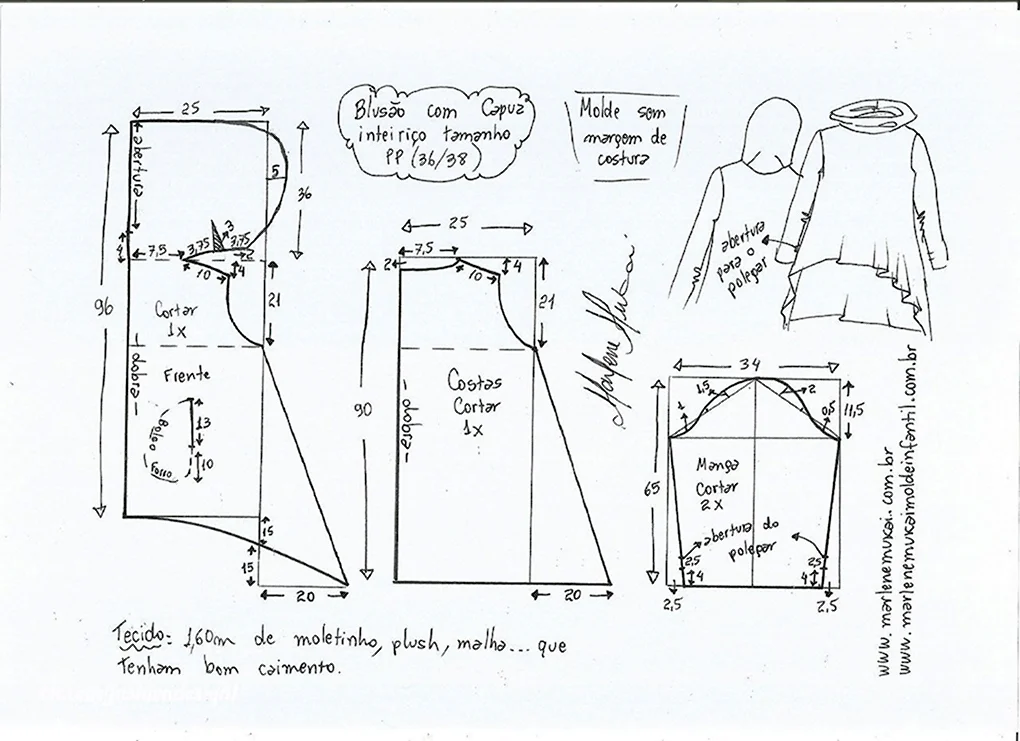 Blusão com Capuz
inteiriço tamanho
PP (36/38)
Molde sem
margem de
costura
25
abertura
5
36
3
4
7,5
3,75
3,75
2
10
4
21
96
Cortar
1X
dobra
Frente
Bolso
Forro
13
10
15
15
20
25
7,5
2
10
4
21
90
Costas
Cortar
1X
dobra
20
Marlene Mukai
abertura
para o
polegar
34
1,5
2
1
0,5
11,5
65
Manga
Cortar
2X
abertura do
polegar
2,5
2,5
4
4
2,5
2,5
www.marlenemukai.com.br
www.marlenemukaimoldeinfantil.com.br
Tecido: 1,60m de moletinho, plush, malha... que
tenham bom caimento.